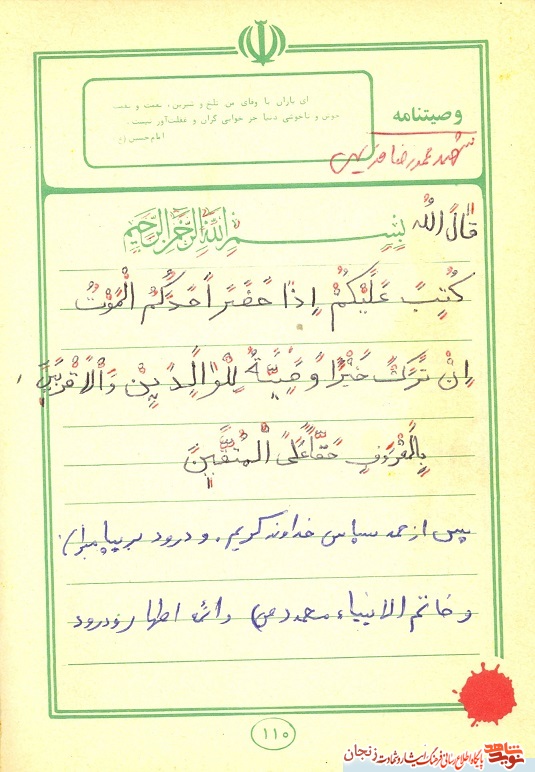 وصیتنامه
ای یاران با وفای من تلخ و شیرین، نعمت و نقمت
خوش و ناخوشی دنیا جز خوابی گران و غفلت‌آور نیست.
امام حسین (ع)
شهید محمدرضا
قال الله
بسم الله الرحمن الرحیم
كُتِبَ عَلَيْكُمْ إِذَا حَضَرَ أَحَدَكُمُ الْمَوْتُ
إِنْ تَرَكَ خَيْرًا وَصِيَّةُ لِلْوَالِدَيْنِ وَالْأَقْرَبِينَ
بِالْمَعْرُوفِ حَقًّا عَلَى الْمُتَّقِينَ
پس از حمد سپاس خداوند کریم و درود بر پیامبران
و خاتم الانبیاء محمد (ص) و ائمه اطهار و درود
۱۱۰
نوید شاهد
پایگاه اطلاع رسانی فرهنگ ایثار و شهادت زنجان